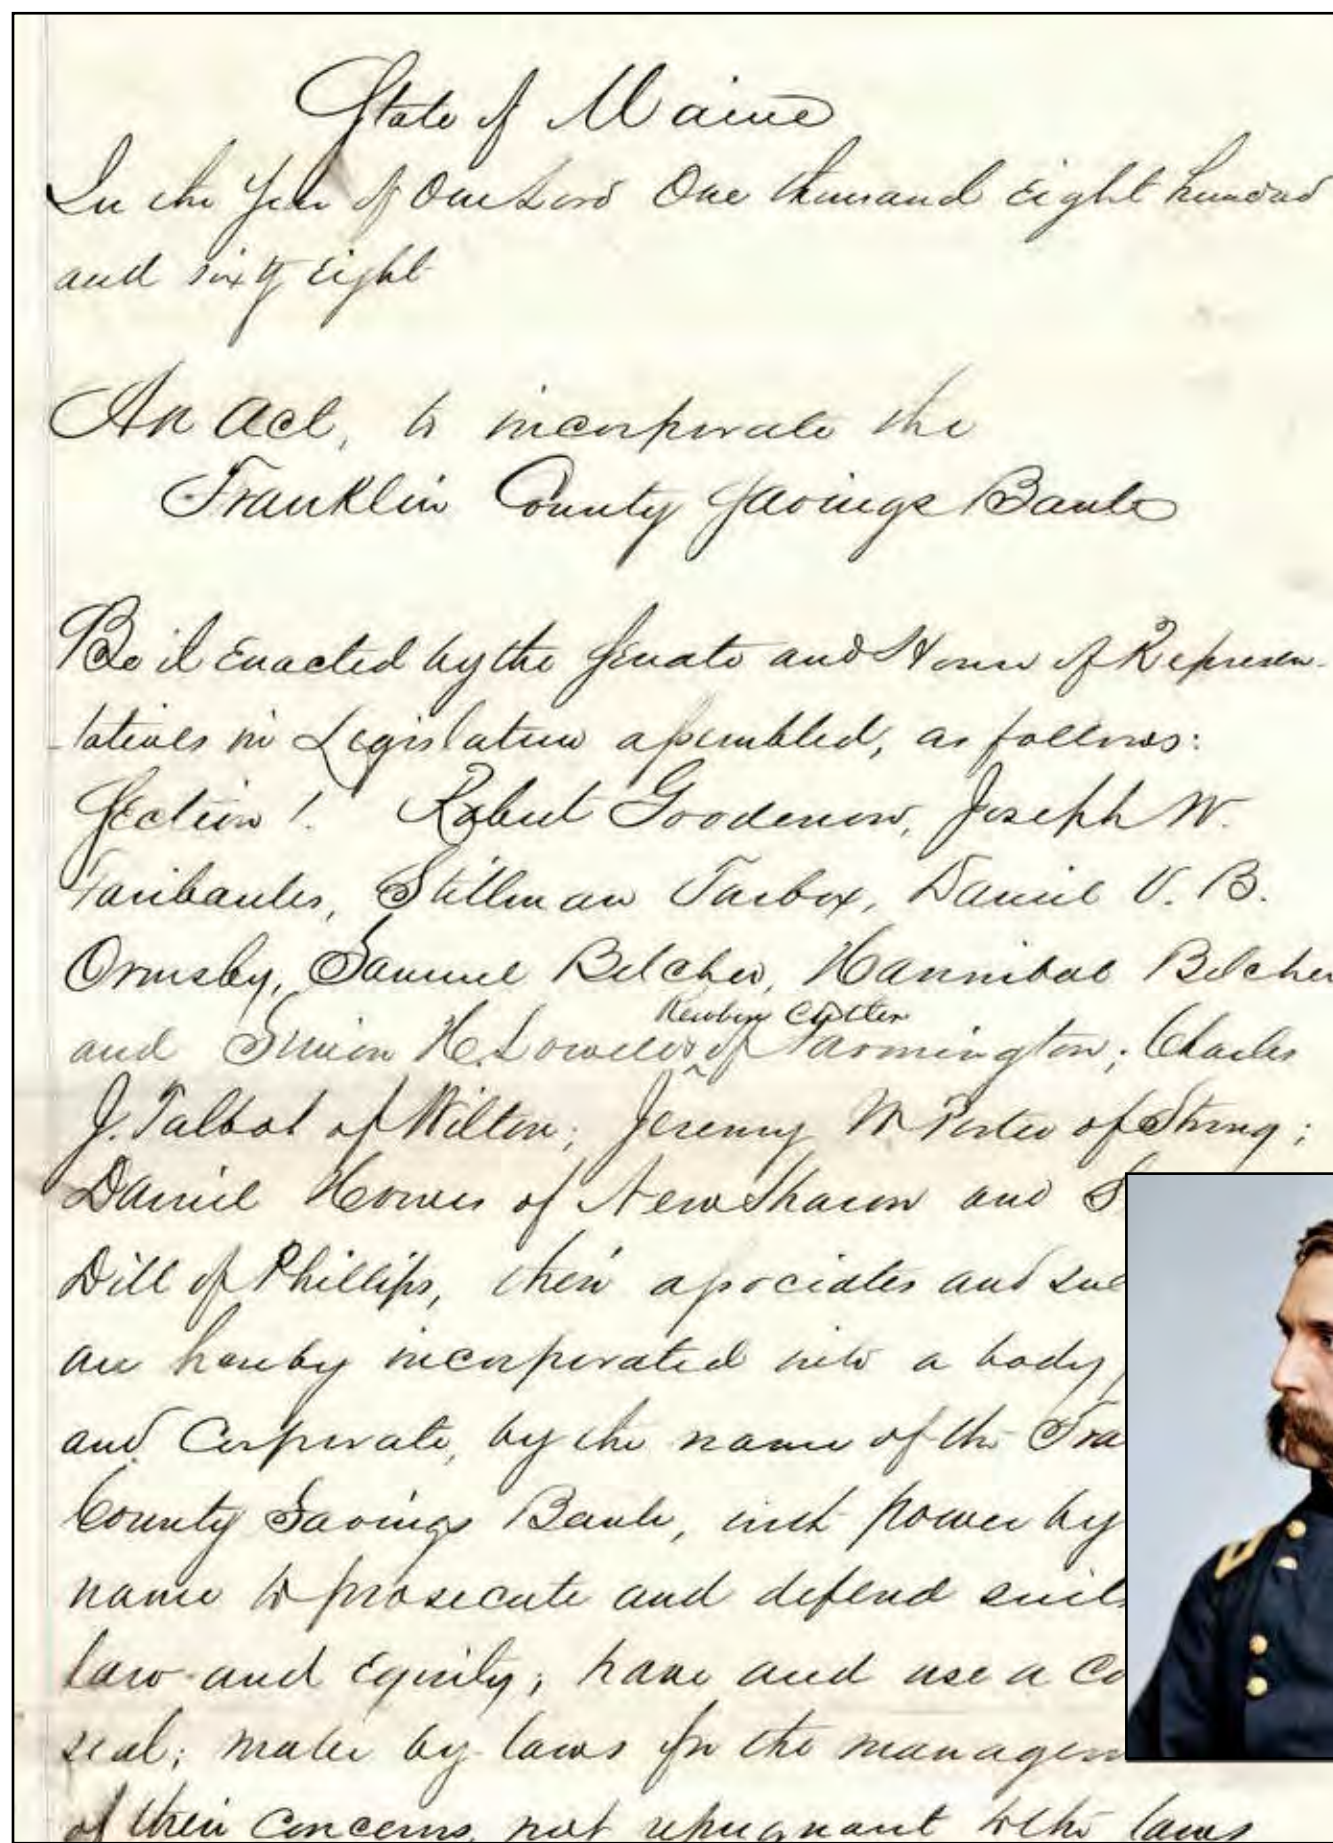 State of Maine
In the Year of Our Lord One thousand Eight hundred
and sixty Eight
An Act, to incorporate the
Franklin County Savings Bank
Be it Enacted by the Senate and House of Represen-
-tatives in Legislature assembled, as follows:
Section 1. Robert Goodenow, Joseph W.
Fairbanks, Stillman Tarbox, Daniel V. B.
Ormsby, Samuel Belcher, Hannibal Belcher
Reuben Cutler
and Simeon H. Lowell of Farmington; Charles
J. Talbot of Wilton; Jeremy W Porter of Strong;
Daniel Howes of New Sharon and S
Dill of Phillips, their associates and suc
are hereby incorporated into a body
and Corporate, by the name of the Fra
County Savings Bank, with power by
name to prosecute and defend suits
law and Equity; have and use a Co
seal; make by-laws for the managem
of their Concerns, not repugnant to the laws